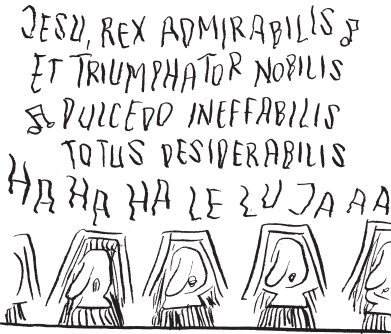 JESU, REX ADMIRABILIS
ET TRIUMPHATOR NOBILIS
DULCEDO INEFFABILIS
TOTUS DESIDERABILIS
HA HA HA LE LU JA A A